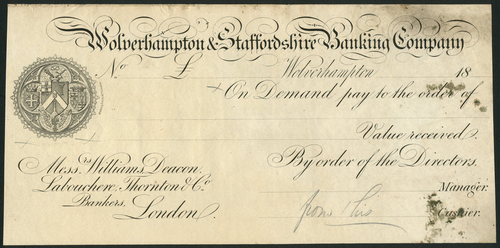 Wolverhampton & Staffordshire Banking Company
No £ Wolverhampton 18
On Demand pay to the order of
Value received.
By order of the Directors.
Mess.rs Williams Deacon,
Labouchere, Thornton & Co.
Bankers,
London.
Manager.
Cashier.
from this